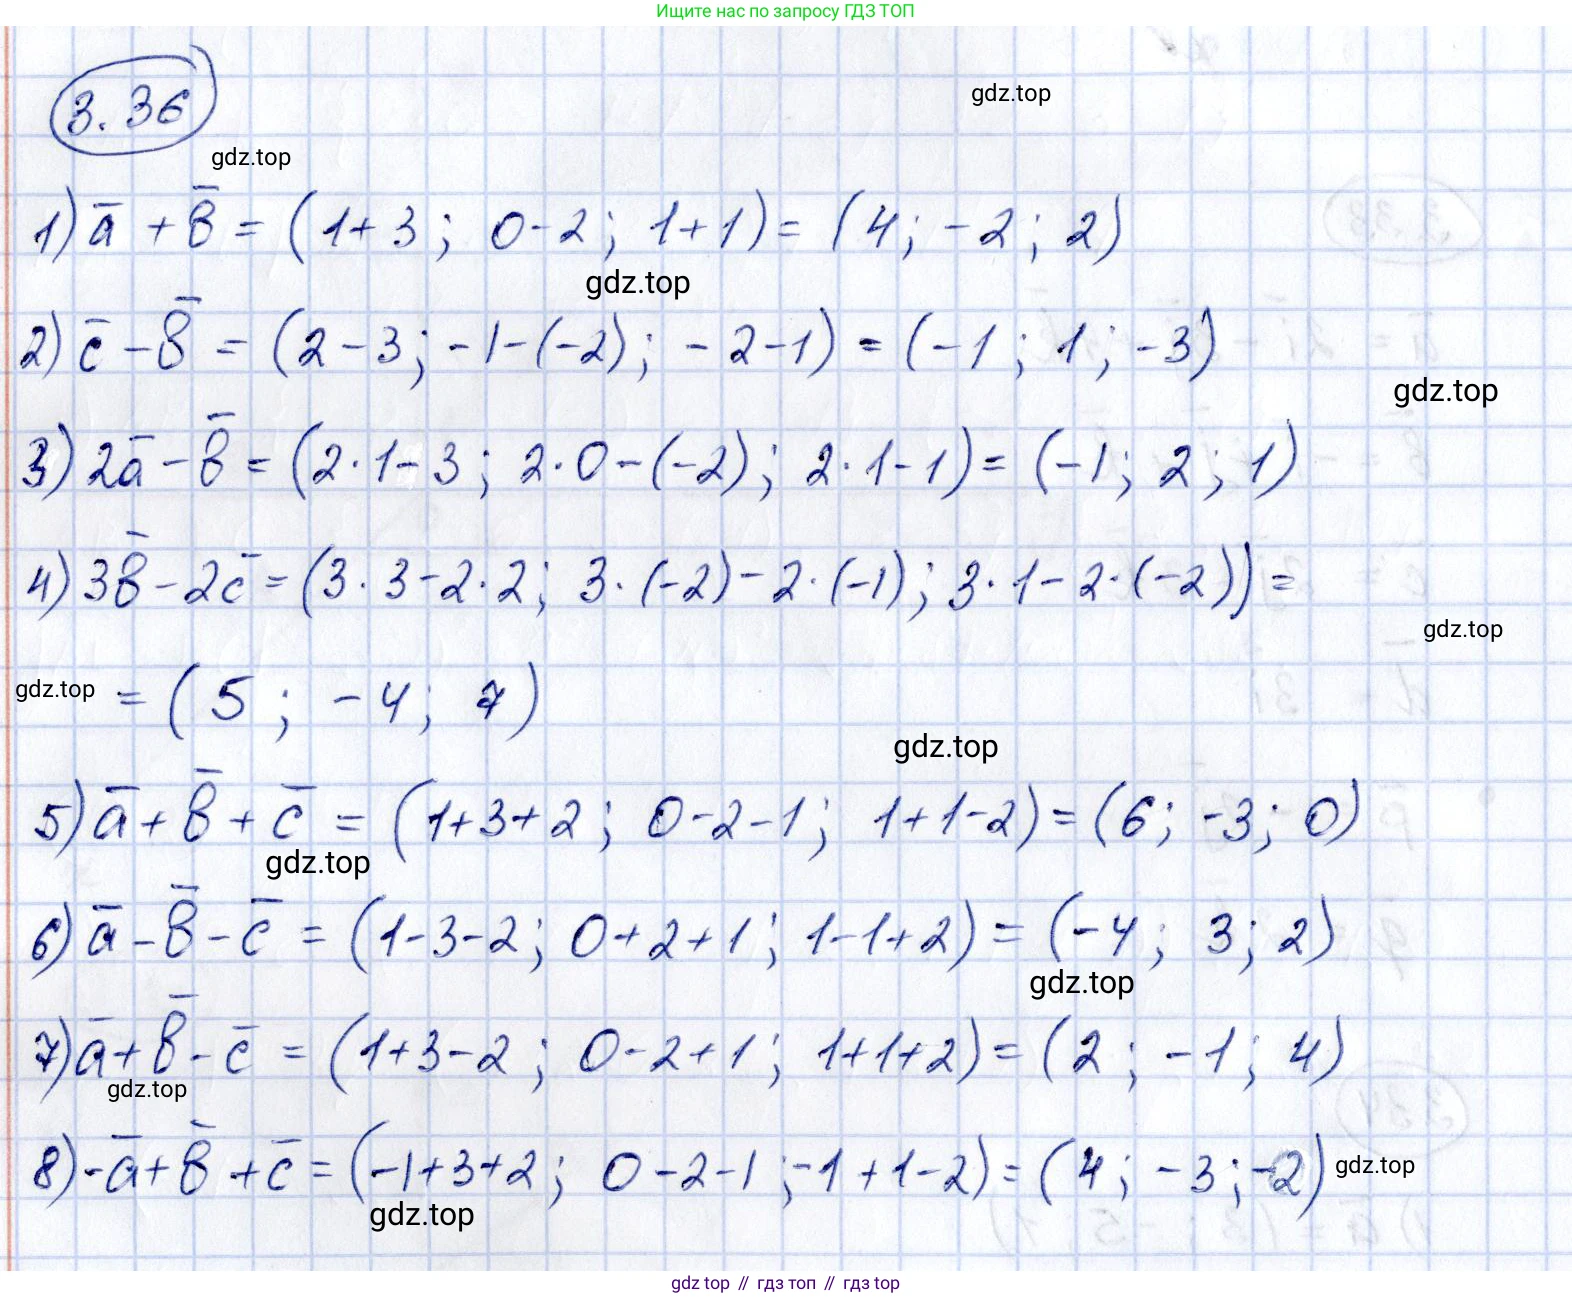 Ищите нас по запросу ГДЗ ТОП
3.36
gdz.top
gdz.top
1) a̅ + b̅ = (1+3; 0-2; 1+1) = (4; -2; 2)
gdz.top
2) c̅ - b̅ = (2-3; -1-(-2); -2-1) = (-1; 1; -3)
gdz.top
3) 2a̅ - b̅ = (2·1-3; 2·0-(-2); 2·1-1) = (-1; 2; 1)
4) 3b̅ - 2c̅ = (3·3-2·2; 3·(-2)-2·(-1); 3·1-2·(-2)) =
gdz.top
gdz.top
= (5; -4; 7)
gdz.top
5) a̅ + b̅ + c̅ = (1+3+2; 0-2-1; 1+1-2) = (6; -3; 0)
gdz.top
6) a̅ - b̅ - c̅ = (1-3-2; 0+2+1; 1-1+2) = (-4; 3; 2)
gdz.top
7) a̅ + b̅ - c̅ = (1+3-2; 0-2+1; 1+1+2) = (2; -1; 4)
gdz.top
8) -a̅ + b̅ + c̅ = (-1+3+2; 0-2-1; -1+1-2) = (4; -3; -2)
gdz.top
gdz.top
gdz top // гдз топ // гдз top